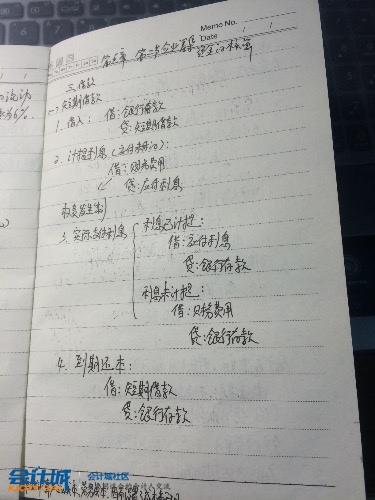 Memo No.
Date
第五章 第二节企业筹集资金的核算
三、借款
(一)短期借款
1. 借入: 借:银行存款
贷:短期借款
2. 计提利息(应付未付):
借:财务费用
贷:应付利息
权责发生制
3. 实际支付利息
利息已计提:
借:应付利息
贷:银行存款
利息未计提:
借:财务费用
贷:银行存款
4. 到期还本:
借:短期借款
贷:银行存款
会计城
会计城社区